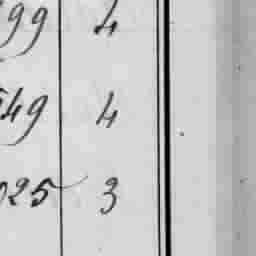 99 4
49 4
025 3